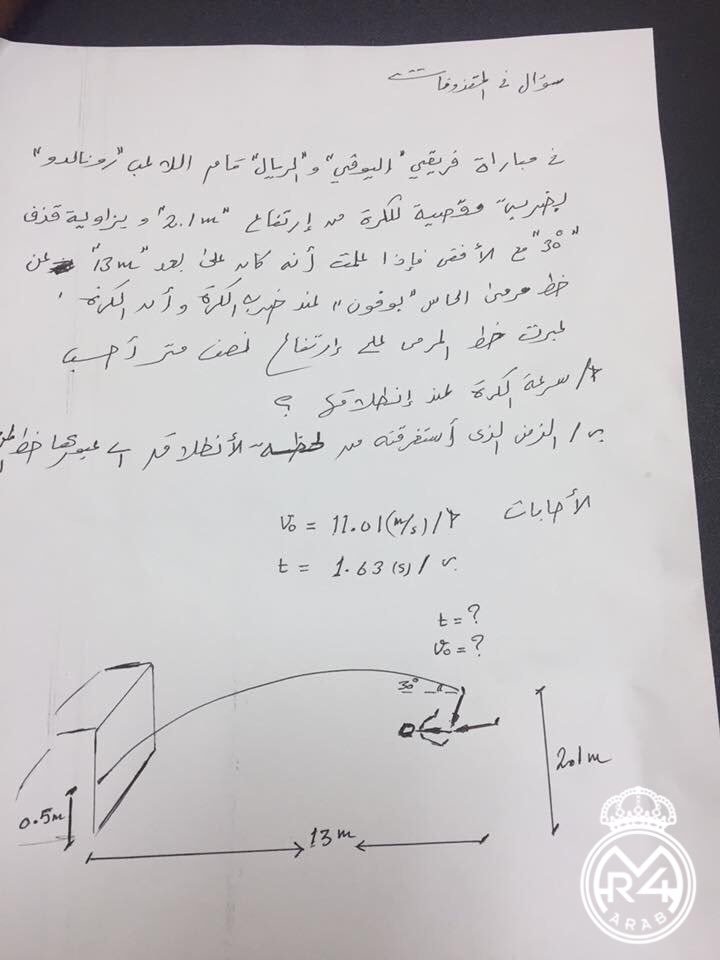 سؤال في المقذوفات
في مباراة فريقي "اليوڤي" و"الريال" قام اللاعب "رونالدو"
بضربة مقصية للكرة من إرتفاع "2.1m" و بزاوية قذف
"30°" مع الأفق فإذا علمت أنه كان على بعد "13m" عن
خط مرمى الحارس "بوفون" عند ضربه الكرة و أن الكرة
عبرت خط المرمى على إرتفاع نصف متر أحسب
١/ سرعة الكرة عند إنطلاقها ؟
ب/ الزمن الذى أستغرقته من لحظة الأنطلاق الى عبورها خط
الأجابات
V₀ = 11.01 (m/s) /١
t = 1.63 (s) / ب
t = ?
V₀ = ?
30°
2.1m
0.5m
13m
R4
ARAB